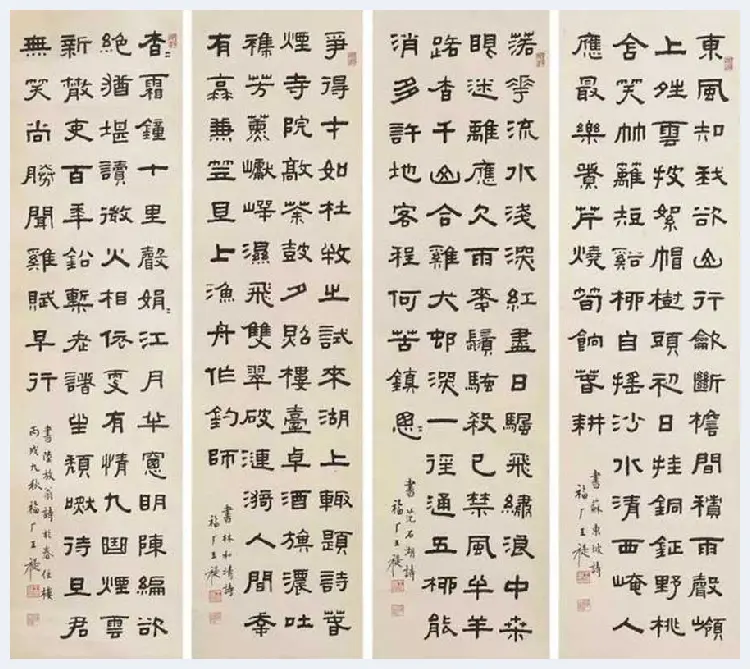 東風知我欲山行龡斷檐間積雨聲嶺
上姓雲披絮帽樹頭初日挂銅鉦野桃
含笑竹籬短谿柳自搖沙水清西崦人
應最樂煮芹燒筍餉春耕
書蘇東坡詩
福厂王禔
落華流水淺深紅盡日颿飛繡浪中桒
眼迷離應欠雨麥鬚騷殺已禁風牛羊
路杳千山合雞犬邨深一徑通五柳能
消多許地客程何苦鎮悤=
書范石湖詩
福厂王禔
爭得才如杜牧之試來湖上輒題詩春
煙寺院敲茶鼓夕照樓臺卓酒旗濃吐
襍芳薰巘崿濕飛雙翠破漣漪人間幸
有蓑兼笠且上漁舟作釣師
書林和靖詩
福厂王禔
杳=霜鐘十里聲娟=江月半窗明陳編欲
絕猶堪讀微火相依更有情九煙雲
新散吏百年鉛槧老諸生頹然待旦君
無笑尚勝聞雞賦早行
書陸放翁詩於春住樓
丙戌九秋福厂王禔